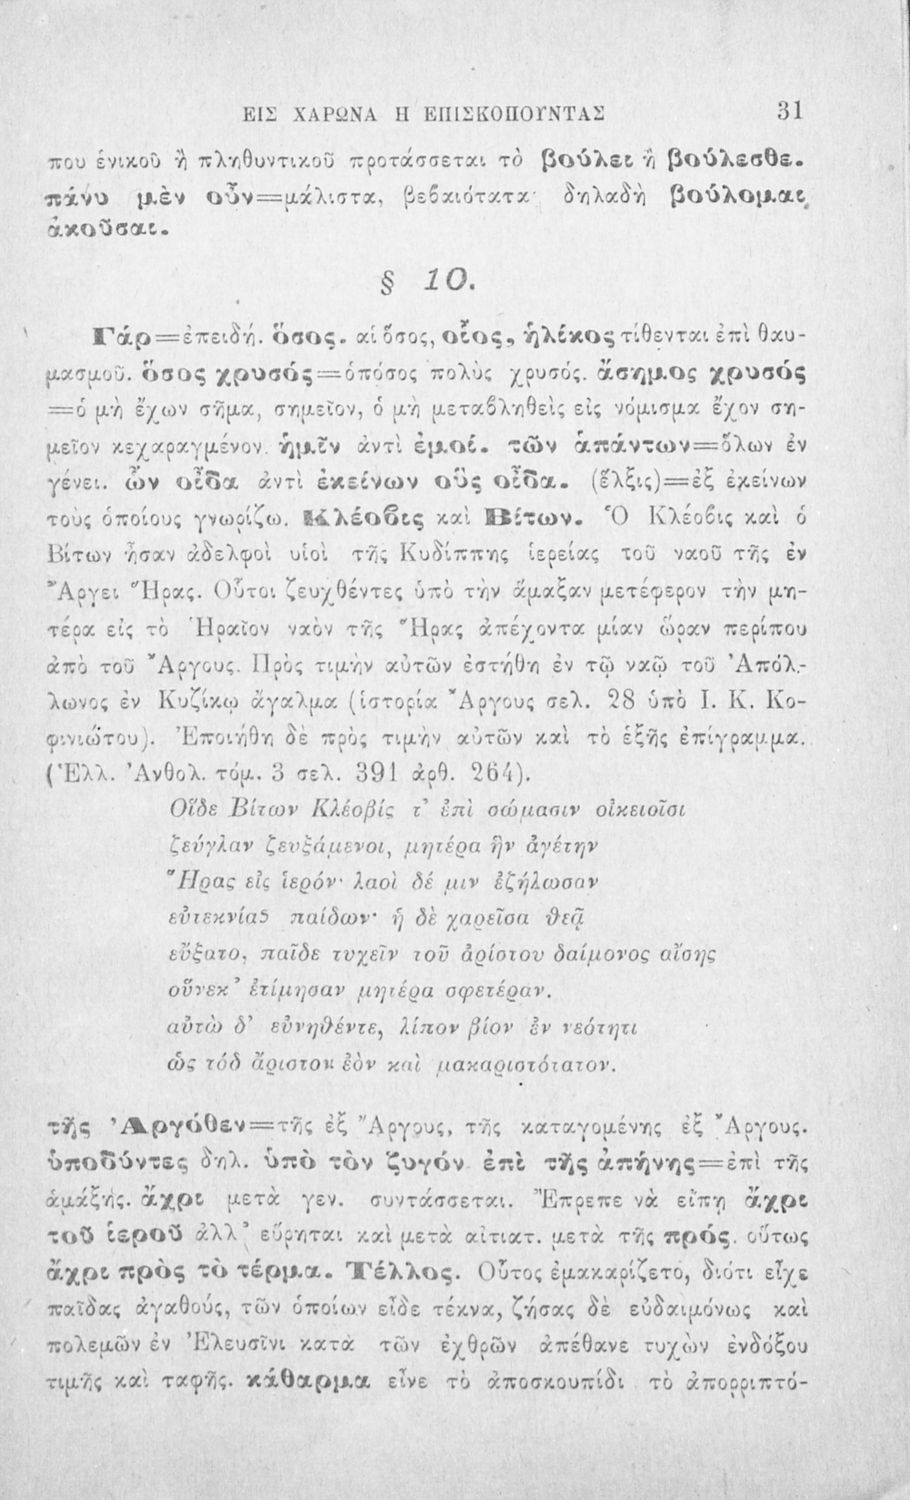 ΕΙΣ ΧΑΡΩΝΑ Η ΕΠΙΣΚΟΠΟΥΝΤΑΣ 31
που ἑνικοῦ ἢ πληθυντικοῦ προτάσσεται τὸ βούλει ἢ βούλεσθε.
πάνυ μὲν οὖν=μάλιστα, βεβαιότατα· δηλαδὴ βούλομαι
ἀκοῦσαι.
§ 10.
Γάρ=ἐπειδή. ὅσος. αἱ ὅσος, οἷος, ἡλίκος τίθενται ἐπὶ θαυ-
μασμοῦ. ὅσος χρυσός=ὁπόσος πολὺς χρυσός. ἄσημος χρυσός
=ὁ μὴ ἔχων σῆμα, σημεῖον, ὁ μὴ μεταβληθεὶς εἰς νόμισμα ἔχον ση-
μεῖον κεχαραγμένον. ἡμῖν ἀντὶ ἐμοί. τῶν ἁπάντων=ὅλων ἐν
γένει. ὧν οἶδα ἀντὶ ἐκείνων οὓς οἶδα. (ἕλξις)=ἐξ ἐκείνων
τοὺς ὁποίους γνωρίζω. Κλέοβις καὶ Βίτων. Ὁ Κλέοβις καὶ ὁ
Βίτων ἦσαν ἀδελφοὶ υἱοὶ τῆς Κυδίππης ἱερείας τοῦ ναοῦ τῆς ἐν
Ἄργει Ἥρας. Οὗτοι ζευχθέντες ὑπὸ τὴν ἅμαξαν μετέφερον τὴν μη-
τέρα εἰς τὸ Ἡραῖον ναὸν τῆς Ἥρας ἀπέχοντα μίαν ὥραν περίπου
ἀπὸ τοῦ Ἄργους. Πρὸς τιμὴν αὐτῶν ἐστήθη ἐν τῷ ναῷ τοῦ Ἀπόλ-
λωνος ἐν Κυζίκῳ ἄγαλμα (ἱστορία Ἄργους σελ. 28 ὑπὸ Ι. Κ. Κο-
φινιώτου). Ἐποιήθη δὲ πρὸς τιμὴν αὐτῶν καὶ τὸ ἑξῆς ἐπίγραμμα.
(Ἑλλ. Ἀνθολ. τόμ. 3 σελ. 391 ἀρθ. 264).
Οἵδε Βίτων Κλέοβίς τ' ἐπὶ σώμασιν οἰκειοῖσι
ζεύγλαν ζευξάμενοι, μητέρα ἣν ἀγέτην
Ἥρας εἰς ἱερόν· λαοὶ δέ μιν ἐζήλωσαν
εὐτεκνίας παίδων· ἡ δὲ χαρεῖσα θεᾷ
εὔξατο, παῖδε τυχεῖν τοῦ ἀρίστου δαίμονος αἴσης
οὕνεκ' ἐτίμησαν μητέρα σφετέραν.
αὐτὼ δ' εὐνηθέντε, λίπον βίον ἐν νεότητι
ὡς τόδ ἄριστον ἐὸν καὶ μακαριστότατον.
τῆς Ἀργόθεν=τῆς ἐξ Ἄργους, τῆς καταγομένης ἐξ Ἄργους.
ὑποδύντες δηλ. ὑπὸ τὸν ζυγόν ἐπὶ τῆς ἀπήνης=ἐπὶ τῆς
ἁμάξης. ἄχρι μετὰ γεν. συντάσσεται. Ἔπρεπε νὰ εἴπῃ ἄχρι
τοῦ ἱεροῦ ἀλλ' εὕρηται καὶ μετὰ αἰτιατ. μετὰ τῆς πρός. οὕτως
ἄχρι πρὸς τὸ τέρμα. Τέλλος. Οὗτος ἐμακαρίζετο, διότι εἶχε
παῖδας ἀγαθούς, τῶν ὁποίων εἶδε τέκνα, ζήσας δὲ εὐδαιμόνως καὶ
πολεμῶν ἐν Ἐλευσῖνι κατὰ τῶν ἐχθρῶν ἀπέθανε τυχὼν ἐνδόξου
τιμῆς καὶ ταφῆς. κάθαρμα εἶνε τὸ ἀποσκουπίδι τὸ ἀπορριπτό-